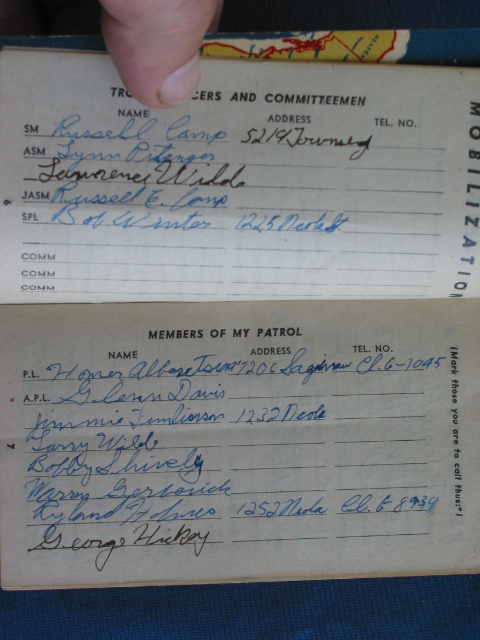 TRO CERS AND COMMITTEEMEN
NAME ADDRESS TEL. NO.
SM Russell Camp 5219 Townsend
ASM Lynn Pitenger
Lawrence Wilde
JASM Russell E. Camp
SPL Bob Winter 1225 Neola St.
COMM
COMM
COMM
6
MOBILIZATION
MEMBERS OF MY PATROL
NAME ADDRESS TEL. NO.
P.L. Homer 7206 Saginaw Cl. 6-1045
A.P.L. Glenn Davis
Jimmie Tomlinson 1232 Neola
Larry Wilde
Bobby Shively
Warren
Ryland Holmes 1252 Neola Cl. 6 8934
George Hickey
7
(Mark those you are to call thus:*)